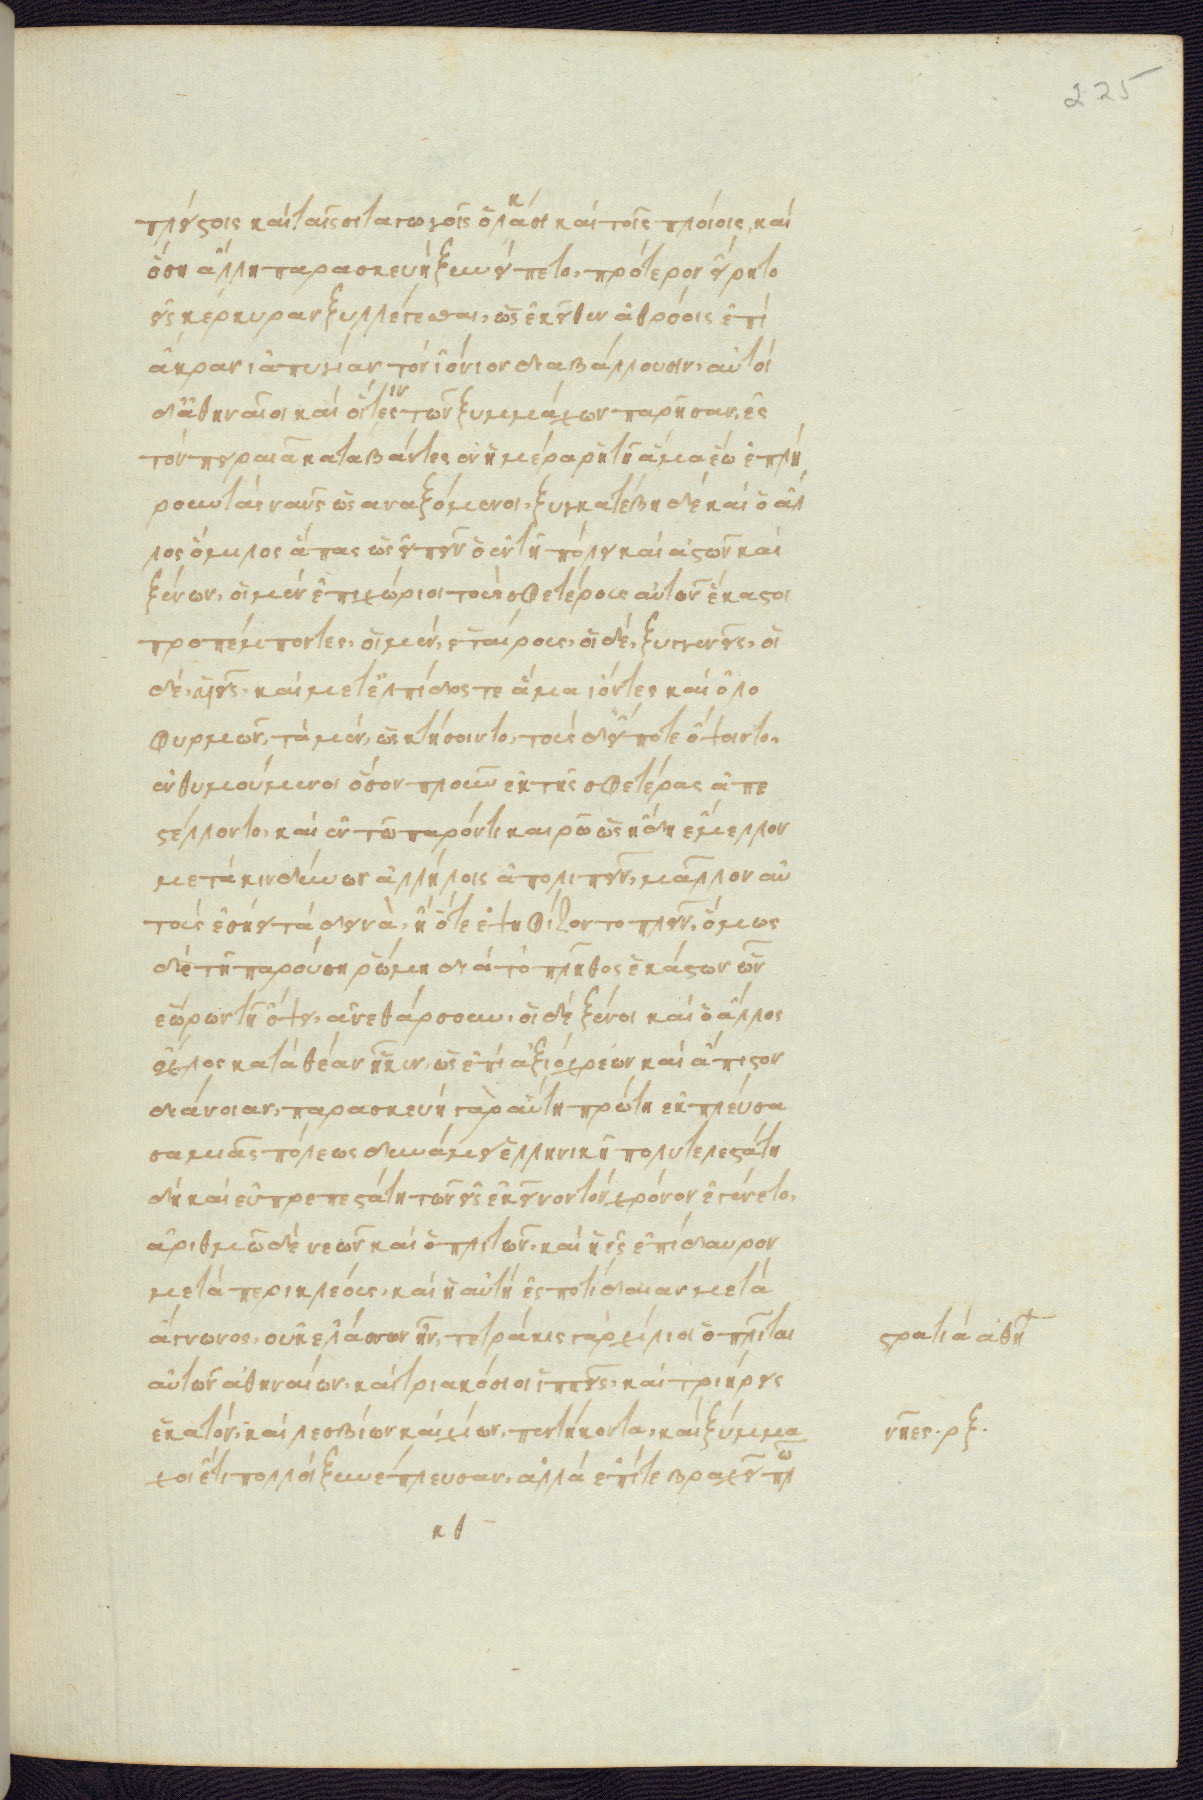 225
πλείστοις καὶ ταῖς σιταγωγοῖς ὁλκάσι καὶ τοῖς πλοίοις, καὶ
ὅση ἄλλη παρασκευὴ ξυνείπετο, πρότερον εἴρητο
εἰς κέρκυραν ξυλλέγεσθαι, ὡς ἐκεῖθεν ἀθρόοις ἐπὶ
ἄκραν ἰαπυγίαν τὸν ἰόνιον διαβάλλουσιν, αὐτοὶ
δ' ἀθηναῖοι καὶ εἴ τινες τῶν ξυμμάχων παρῆσαν, ἐς
τὸν πειραιᾶ καταβάντες ἐν ἡμέρα ῥητῆ ἅμα ἕω ἐπλή
ρουν τὰς ναῦς ὡς ἀναξόμενοι, ξυγκατέβη δὲ καὶ ὁ ἄλ
λος ὅμιλος ἅπας ὡς εἰπεῖν ὁ ἐν τῆ πόλει καὶ ἀστῶν καὶ
ξένων, οἱ μὲν ἐπιχώριοι τοὺς σφετέρους αὐτῶν ἕκαστοι
προπέμποντες, οἱ μὲν, ἑταίρους, οἱ δὲ, ξυγγενεῖς, οἱ
δὲ, υἱεῖς, καὶ μετ' ἐλπίδος τε ἅμα ἰόντες καὶ ὀλο
φυρμῶν, τὰ μὲν, ὡς κτήσοιντο, τοὺς δ' εἴποτε ὄψοιντο,
ἐνθυμούμενοι ὅσον πλοῦν ἐκ τῆς σφετέρας ἀπε
στέλλοντο, καὶ ἐν τῶ παρόντι καιρῶ ὡς ἤδη ἔμελλον
μετὰ κινδύνων ἀλλήλοις ἀπολιπεῖν, μᾶλλον αὐ
τοὺς ἐσήει τὰ δεινὰ, ἢ ὅτε ἐψηφίζοντο πλεῖν, ὅμως
δὲ τῆ παρούση ῥώμη διὰ τὸ πλῆθος ἑκάστων ὧν
ἑώρων τῆ ὄψει, ἀνεθάρσουν, οἱ δὲ ξένοι καὶ ὁ ἄλλος
ὄχλος κατὰ θέαν ἧκεν, ὡς ἐπὶ ἀξιόχρεων καὶ ἄπιστον
διάνοιαν, παρασκευὴ γὰρ αὕτη πρώτη ἐκπλεύσα
σα μιᾶς πόλεως δυνάμει ἑλληνικῆ πολυτελεστάτη
δὴ καὶ εὐπρεπεστάτη τῶν εἰς ἐκεῖνον τὸν χρόνον ἐγένετο,
ἀριθμῶ δὲ νεῶν καὶ ὁπλιτῶν, καὶ ἡ ἐς ἐπίδαυρον
μετὰ περικλέους, καὶ ἡ αὐτὴ ἐς ποτίδαιαν μετὰ
ἅγνωνος, οὐκ ἐλάσσων ἦν, τετράκις γὰρ χίλιοι ὁπλῖται
στρατιὰ ἀθη
αὐτῶν ἀθηναίων, καὶ τριακόσιοι ἱππεῖς, καὶ τριήρεις
ἑκατὸν, καὶ λεσβίων καὶ χίων, πεντήκοντα, καὶ ξύμμα
νῆες. ρξ.
χοι ἔτι πολλοὶ ξυνέπλευσαν, ἀλλὰ ἐπί τε βραχεῖ πλῶ
κθ